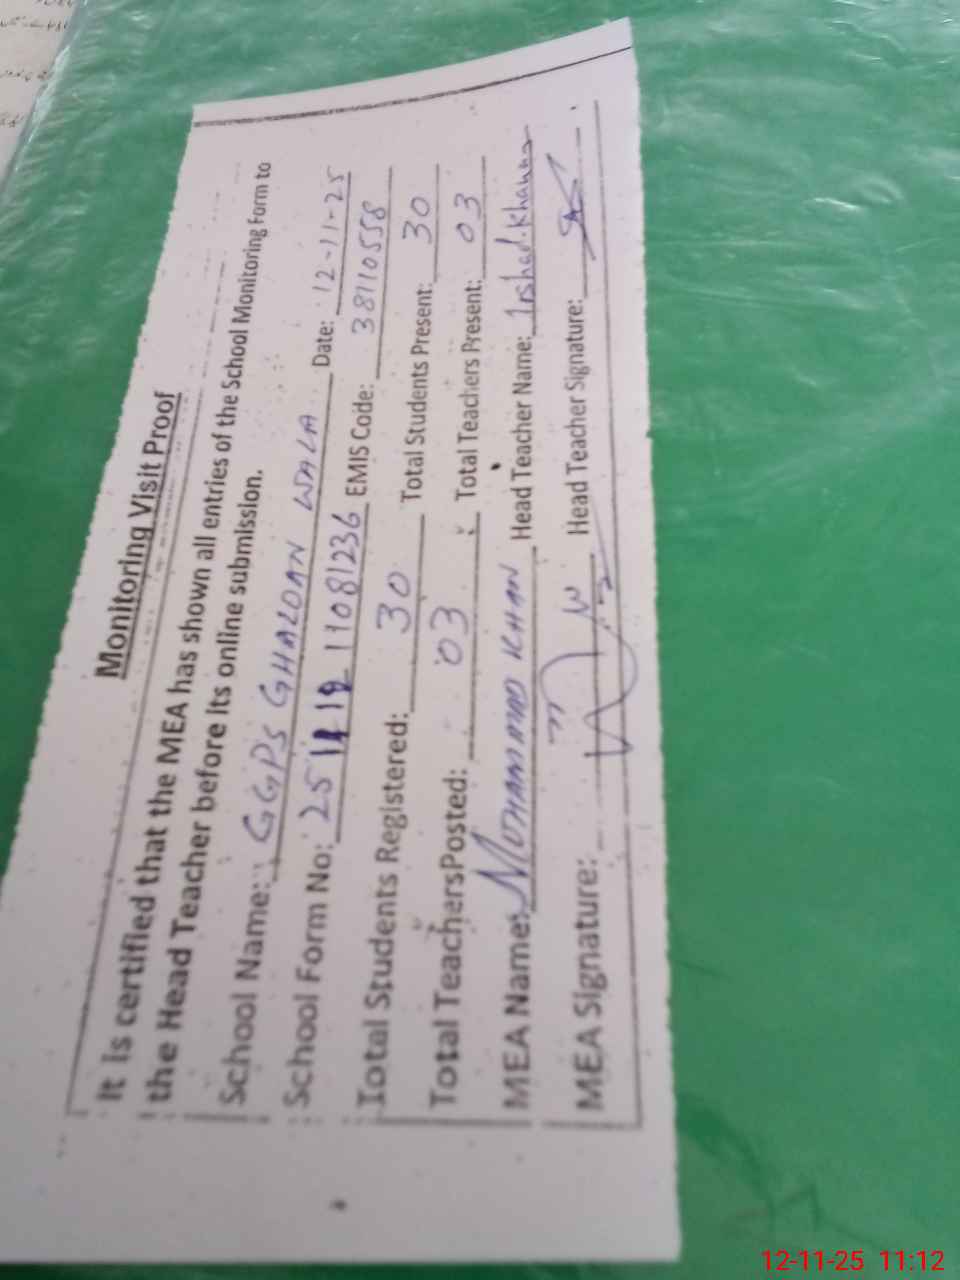 Monitoring Visit Proof
It is certified that the MEA has shown all entries of the School Monitoring Form to
the Head Teacher before its online submission.
School Name: GGPS GHALOAN WALA Date: 12-11-25
School Form No: 25 11081236 EMIS Code: 38110558
Total Students Registered: 30 Total Students Present: 30
Total TeachersPosted: 03 Total Teachers Present: 03
MEA Name: MUHAMMAD KHAN Head Teacher Name: Irshad. Khanna
MEA Signature: Head Teacher Signature:
12-11-25 11:12